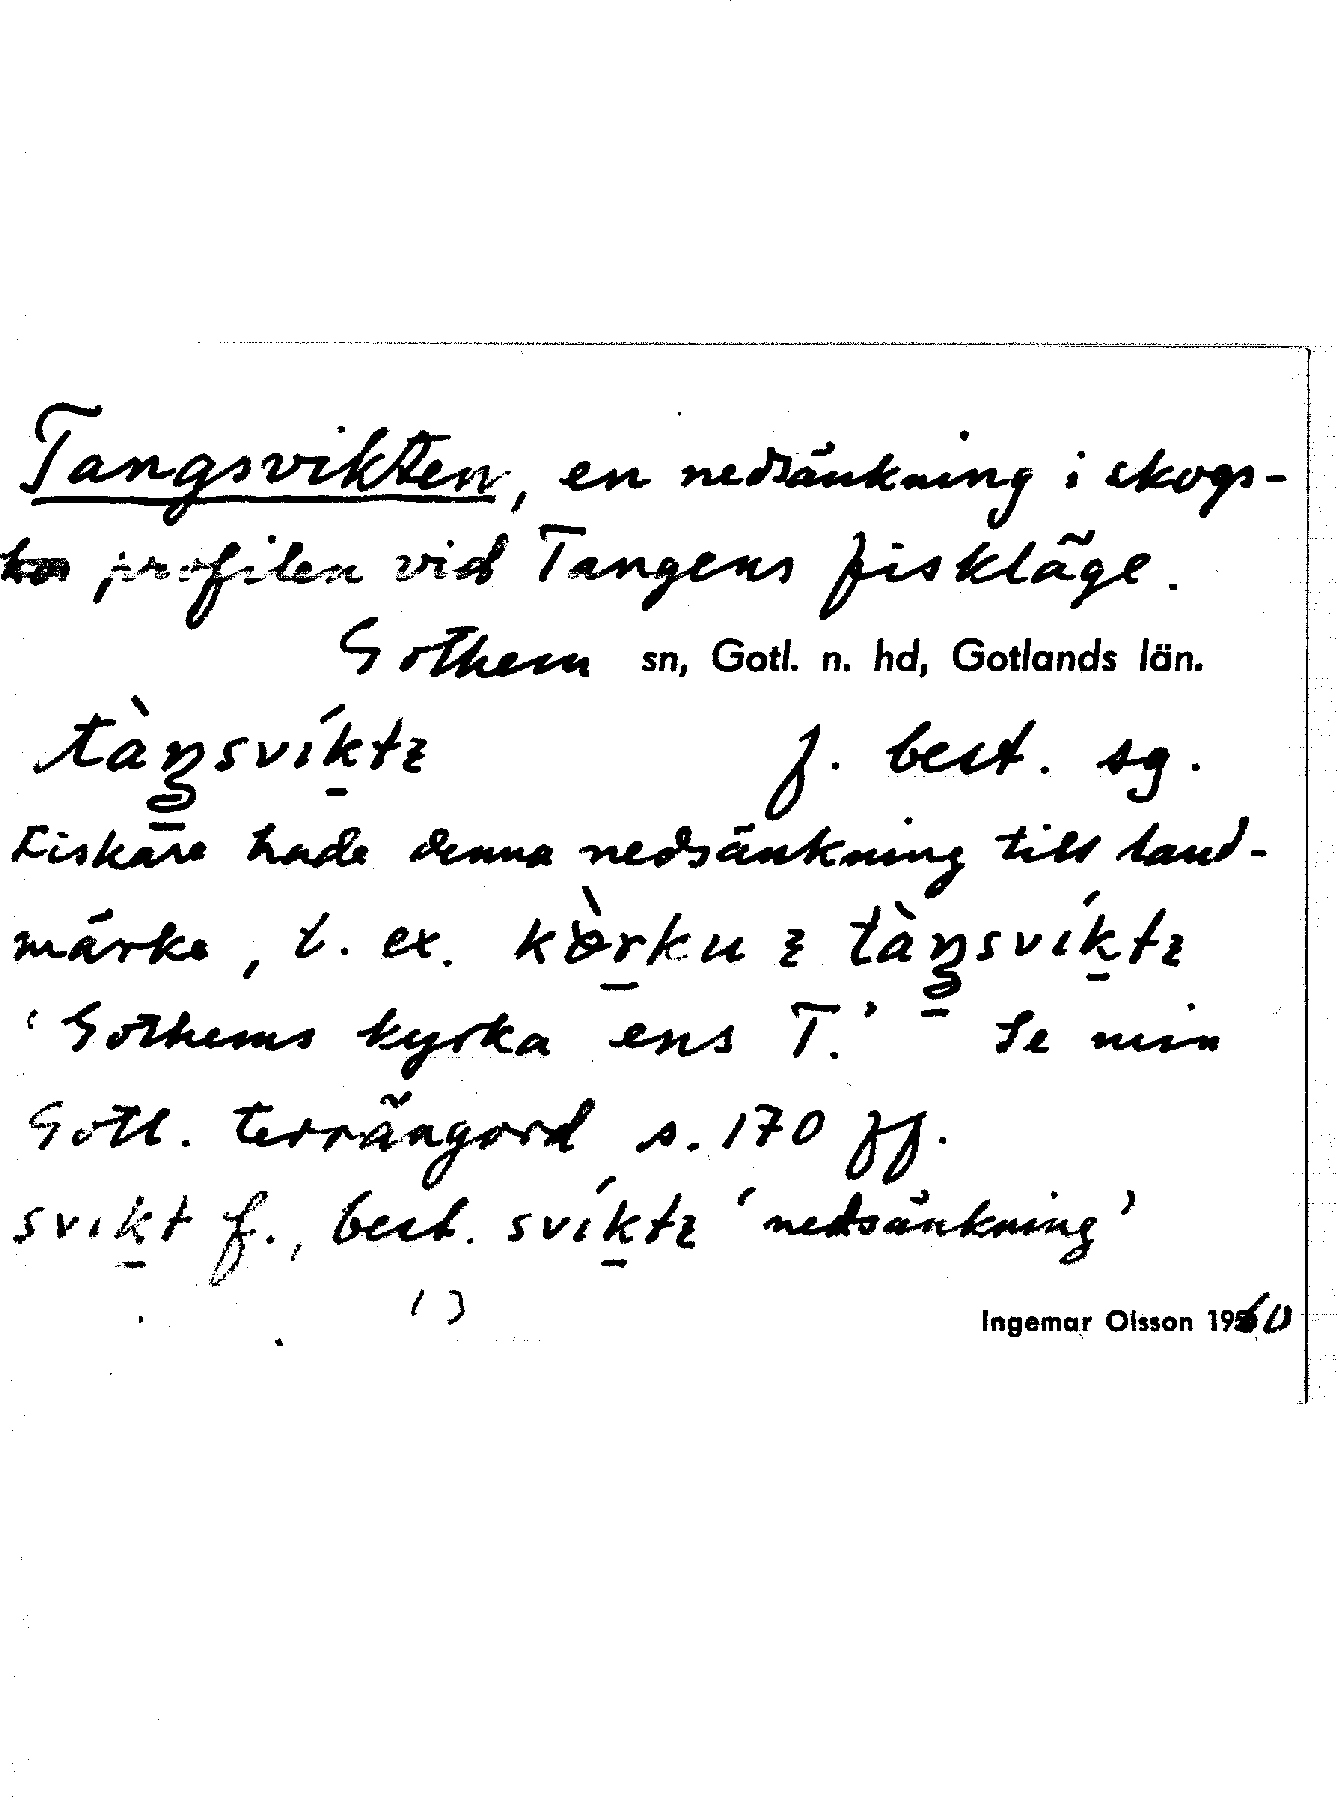 Tangsvikten, en nedsänkning i skogs-
profilen vid Tangens fiskläge.
Gothem sn, Gotl. n. hd, Gotlands län.
tàŋsvíktɛ f. best. sg.
Fiskare hade denna nedsänkning till land-
märke, t. ex. kɵ̀rku ɛ tàŋsvíktɛ
'Gothems kyrka ens T.' Se min
Gotl. terrängord s. 170 ff.
svikt f., best. svíktɛ 'nedsänkning'
( )
Ingemar Olsson 1960